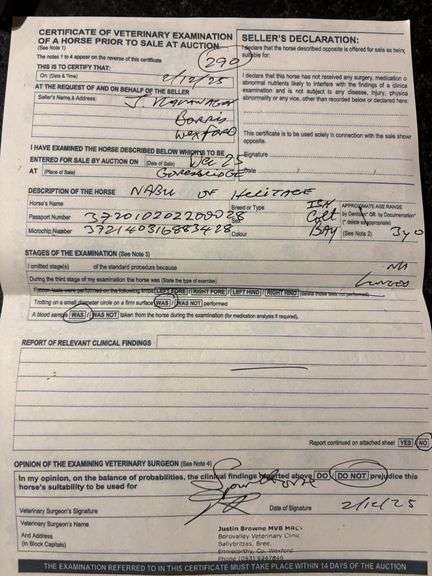 CERTIFICATE OF VETERINARY EXAMINATION
OF A HORSE PRIOR TO SALE AT AUCTION
(See Note 1)
290
The notes 1 to 4 appear on the reverse of this certificate
THIS IS TO CERTIFY THAT:
On (Date & Time) 2/12/25
AT THE REQUEST OF AND ON BEHALF OF THE SELLER
Seller's Name & Address:
Borris
Wexford
I HAVE EXAMINED THE HORSE DESCRIBED BELOW WHICH IS TO BE
ENTERED FOR SALE BY AUCTION ON (Date of Sale) Dec 25
AT (Place of Sale) Goresbridge
SELLER'S DECLARATION:
I declare that the horse described opposite is offered for sale as being
suitable for:
I declare that this horse has not received any surgery, medication or
abnormal nutrients likely to interfere with the findings of a clinical
examination and is not subject to any disease, injury, physical
abnormality or any vice, other than recorded below or declared here:
This certificate is to be used solely in connection with the sale shown
opposite.
Signature
Date
DESCRIPTION OF THE HORSE
Horse's Name NABU OF HERITAGE
Breed or Type ISH
Passport Number
Sex Colt
Microchip Number 372140316883428
Colour BAY
APPROXIMATE AGE RANGE
(See Note 2) 3yo
STAGES OF THE EXAMINATION (See Note 3)
I omitted stage(s) of the standard procedure because N/A
During the third stage of my examination this horse was (State the type of exercise) Lunged
LEFT FORE / RIGHT FORE / LEFT HIND / RIGHT HIND
Trotting on a small diameter circle on a firm surface WAS / WAS NOT performed
A blood sample WAS / WAS NOT taken from the horse during the examination (for medication analysis if required).
REPORT OF RELEVANT CLINICAL FINDINGS
Report continued on attached sheet YES / NO
OPINION OF THE EXAMINING VETERINARY SURGEON (See Note 4)
In my opinion, on the balance of probabilities, the clinical findings reported above DO / DO NOT prejudice this
horse's suitability to be used for
Veterinary Surgeon's Signature
Date of Signature 2/12/25
Veterinary Surgeon's Name
And Address
(In Block Capitals)
Justin Browne MVB MRCVS
Borovalley Veterinary Clinic
Ballybrittas, Bree,
Enniscorthy, Co. Wexford
THE EXAMINATION REFERRED TO IN THIS CERTIFICATE MUST TAKE PLACE WITHIN 14 DAYS OF THE AUCTION